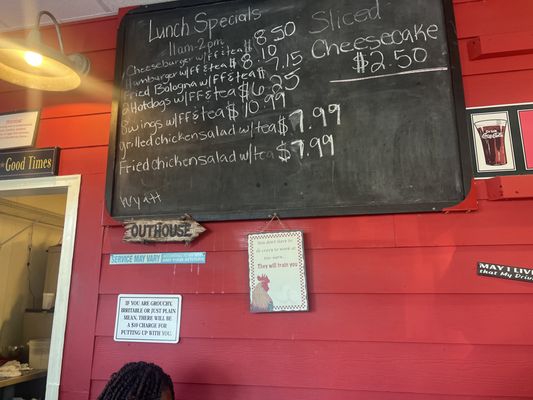 Lunch Specials
11am-2pm
Cheeseburger w/FF & tea $8.50
Hamburger w/FF & tea $8.10
Fried Bologna w/FF & tea $7.15
2 Hotdogs w/FF & tea $6.25
5wings w/FF & tea $10.99
grilled chicken salad w/tea $7.99
Fried chicken salad w/tea $7.99
Wyatt
Sliced
Cheesecake
$2.50
Good Times
OUTHOUSE
SERVICE MAY VARY
IF YOU ARE GROUCHY,
IRRITABLE OR JUST PLAIN
MEAN, THERE WILL BE
A $10 CHARGE FOR
PUTTING UP WITH YOU.
You don't have to
be crazy to work at
They will train you
Coca-Cola
MAY I LIVE
that my Driv